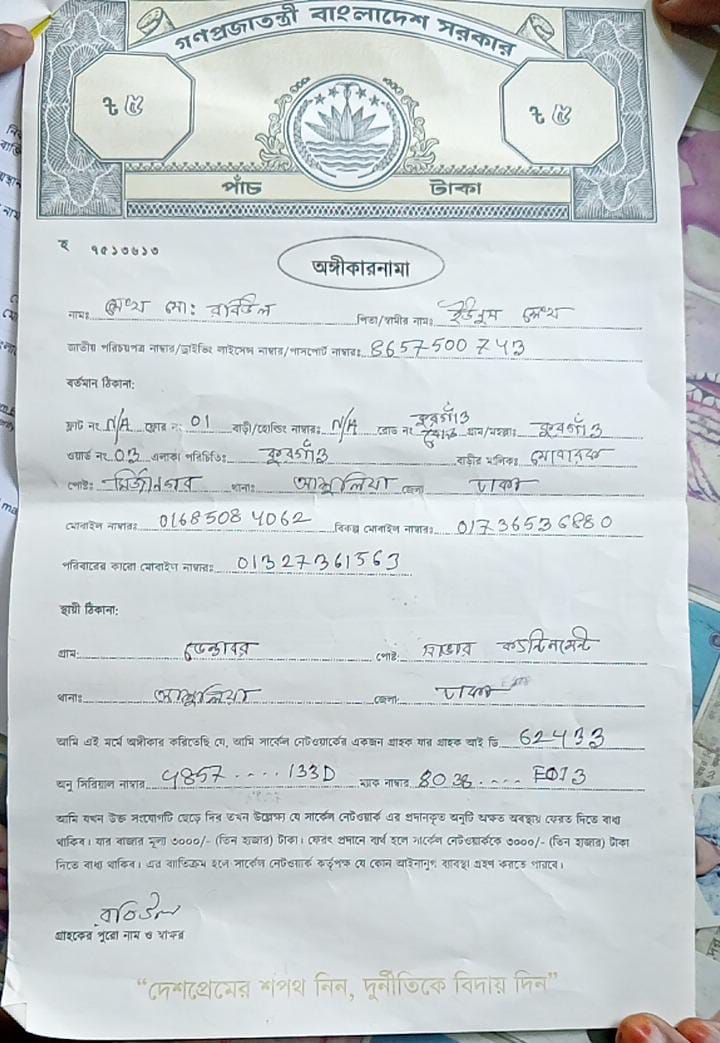 গণপ্রজাতন্ত্রী বাংলাদেশ সরকার
৳ ৫ ৳ ৫
পাঁচ টাকা
হ ৭৫১৩৬১৩
অঙ্গীকারনামা
নামঃ শেখ মো: রবিউল পিতা/স্বামীর নামঃ ইউনুস শেখ
জাতীয় পরিচয়পত্র নাম্বার/ড্রাইভিং লাইসেন্স নাম্বার/পাসপোর্ট নাম্বারঃ 8657500743
বর্তমান ঠিকানা:
ফ্ল্যাট নং N/A ফ্লোর নং 01 বাড়ী/হোল্ডিং নাম্বারঃ N/A রোড নং কুরগাঁও রোড গ্রাম/মহল্লাঃ কুরগাঁও
ওয়ার্ড নং 03 এলাকা পরিচিতিঃ কুরগাঁও বাড়ীর মালিকঃ মোবারক
পোষ্টঃ মির্জানগর থানাঃ আশুলিয়া জেলা ঢাকা
মোবাইল নাম্বারঃ 01685084062 বিকল্প মোবাইল নাম্বারঃ 01736536880
পরিবারের কারো মোবাইল নাম্বারঃ 01327361563
স্থায়ী ঠিকানা:
গ্রামঃ ডেন্ডাবর পোষ্টঃ সাভার কেন্টনমেন্ট
থানাঃ আশুলিয়া জেলাঃ ঢাকা
আমি এই মর্মে অঙ্গীকার করিতেছি যে, আমি সার্কেল নেটওয়ার্কের একজন গ্রাহক যার গ্রাহক আই ডি 62433
অনু সিরিয়াল নাম্বার 4857....133D ম্যাক নাম্বার 8038.... F013
আমি যখন উক্ত সংযোগটি ছেড়ে দিব তখন উল্লেখ্য যে সার্কেল নেটওয়ার্ক এর প্রদানকৃত অনুটি অক্ষত অবস্থায় ফেরত দিতে বাধ্য
থাকিব। যার বাজার মূল্য ৩০০০/- (তিন হাজার) টাকা। ফেরৎ প্রদানে ব্যর্থ হলে সার্কেল নেটওয়ার্ককে ৩০০০/- (তিন হাজার) টাকা
দিতে বাধ্য থাকিব। এর ব্যতিক্রম হলে সার্কেল নেটওয়ার্ক কর্তৃপক্ষ যে কোন আইনানুগ ব্যবস্থা গ্রহণ করতে পারবে।
রবিউল
গ্রাহকের পুরো নাম ও স্বাক্ষর
“দেশপ্রেমের শপথ নিন, দুর্নীতিকে বিদায় দিন”